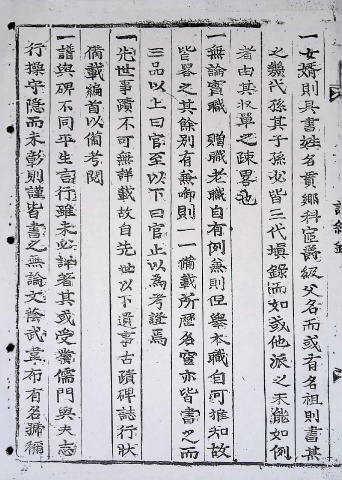 一女婿則具書姓名貫鄉科宦爵級父名而或有名祖則書其
之幾代孫其子孫必皆三代塡錄而如或他派之未能如例
者由其收單之疎畧也
一無論實職贈職老職自有例兼則但擧本職自可推知故
皆畧之其餘別有兼啣則一一備載所歷名宦亦皆書之而
三品以上曰官至以下曰官止以爲考證焉
一先世事蹟不可無詳載故自先世以下遺事古蹟碑誌行狀
備載編首以備考閱
一譜與碑不同平生言行雖未必詳著其或受業儒門與夫志
行操守隱而未彰則謹皆書之無論文蔭武韋布有名號稱